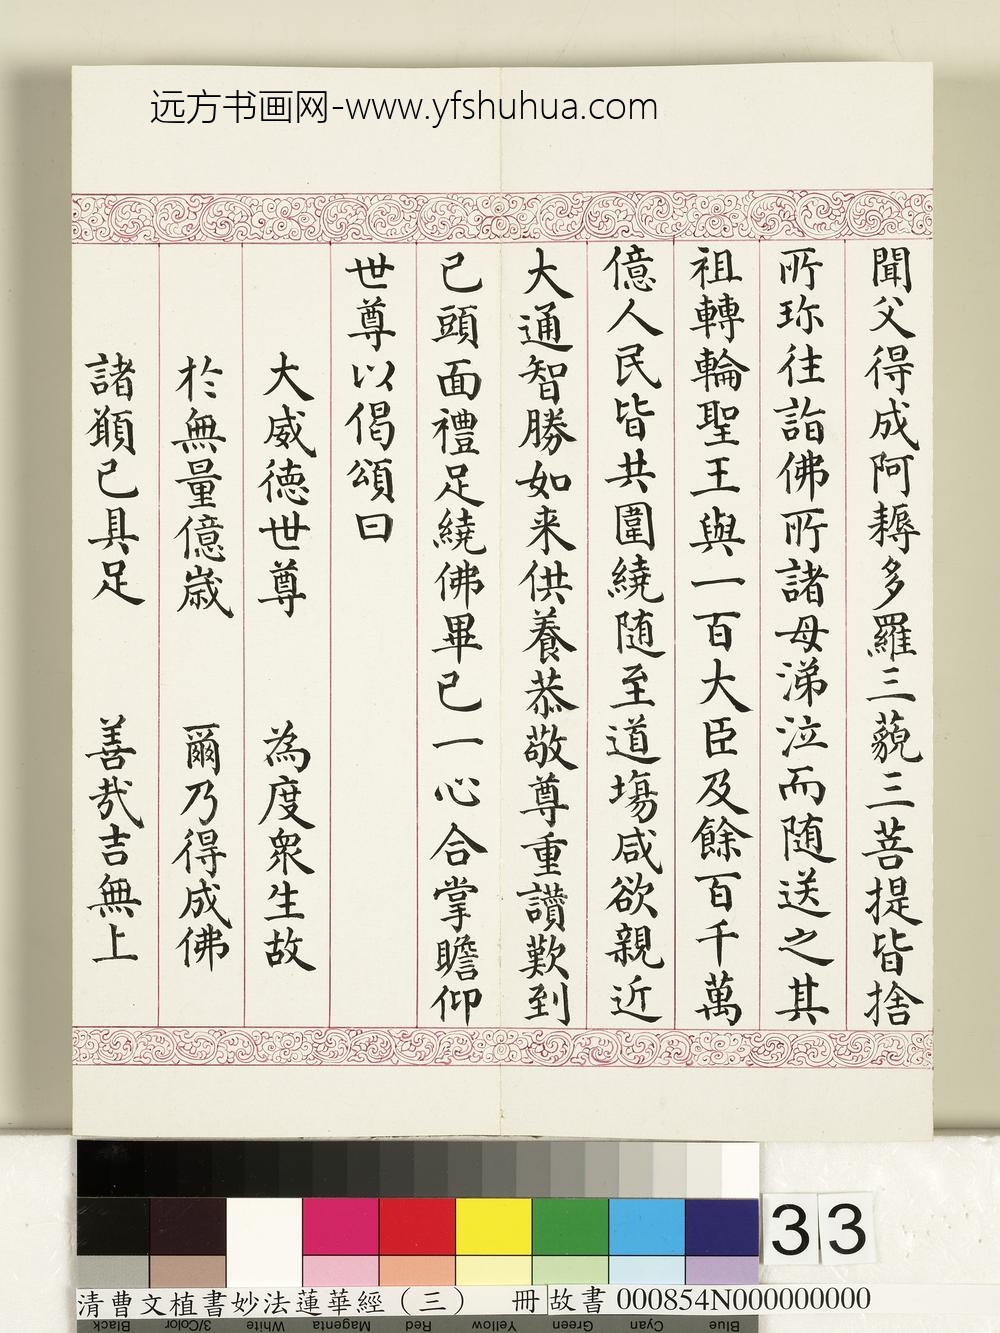 远方书画网-www.yfshuhua.com
聞父得成阿耨多羅三藐三菩提皆捨
所珎往詣佛所諸母涕泣而随送之其
祖轉輪聖王與一百大臣及餘百千萬
億人民皆共圍繞随至道場咸欲親近
大通智勝如来供養恭敬尊重讃歎到
已頭面禮足繞佛畢已一心合掌瞻仰
世尊以偈頌曰
大威徳世尊　為度衆生故
於無量億歳　爾乃得成佛
諸願已具足　善哉吉無上
33
清曹文植書妙法蓮華經（三）　冊 故書 000854N000000000
Black 3/Color White Magenta Red Yellow Green Cyan Blue